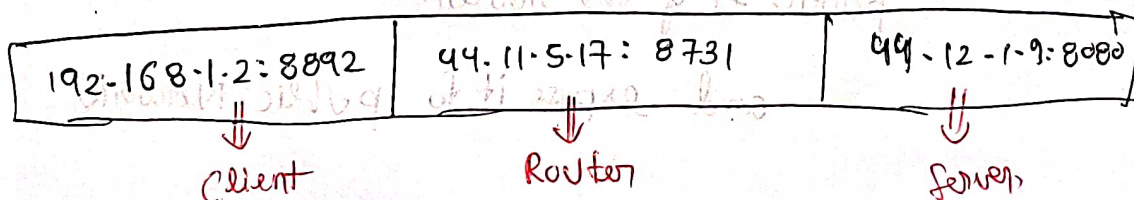 192.168.1.2:8892 44.11.5.17: 8731 44.12.1.9:8080
Client Router Server